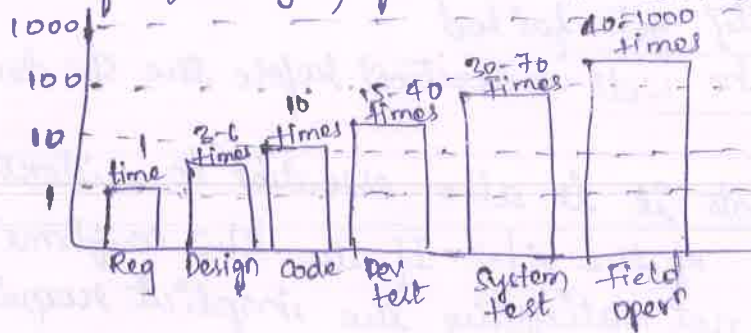 1000
100
10
1
1
time
3-6
times
10
times
15-40
times
30-70
times
40-1000
times
Req
Design
code
Dev
test
System
test
Field
opern